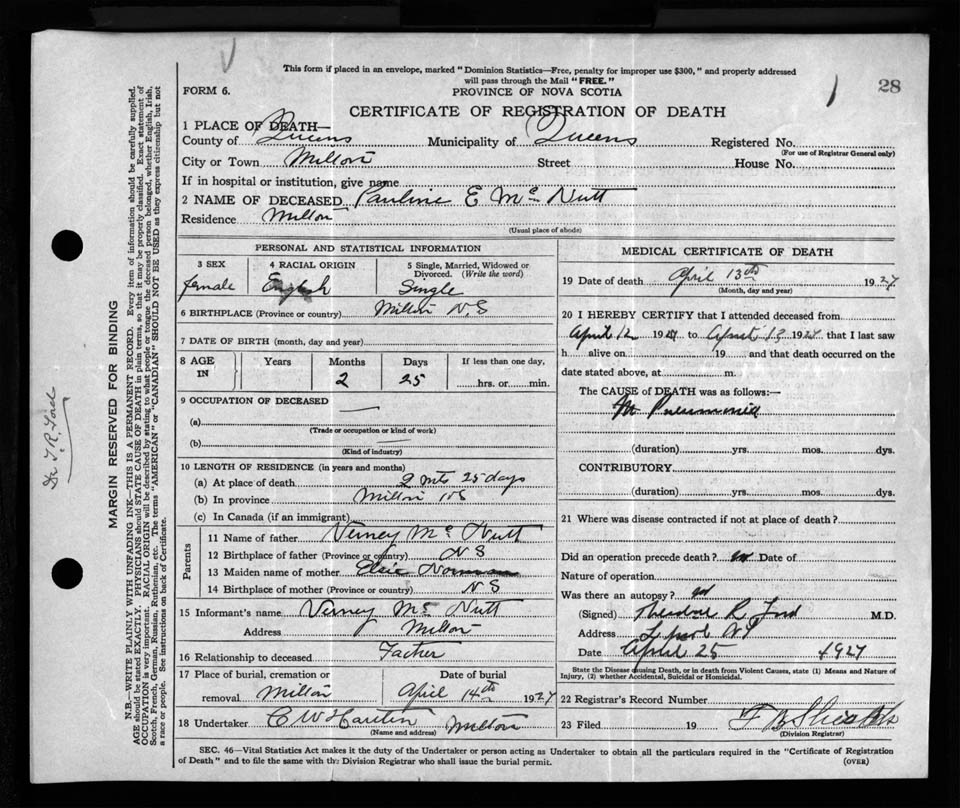 This form if placed in an envelope, marked "Dominion Statistics—Free, penalty for improper use $300," and properly addressed
will pass through the Mail "FREE."
FORM 6.
PROVINCE OF NOVA SCOTIA
28
CERTIFICATE OF REGISTRATION OF DEATH
1 PLACE OF DEATH—
County of Queens Municipality of Queens Registered No.
(For use of Registrar General only)
City or Town Milton Street House No.
If in hospital or institution, give name
2 NAME OF DECEASED Pauline E Mc Nutt
Residence Milton
(Usual place of abode)
PERSONAL AND STATISTICAL INFORMATION
3 SEX 4 RACIAL ORIGIN 5 Single, Married, Widowed or Divorced. (Write the word)
female English Single
6 BIRTHPLACE (Province or country) Milton N.S
7 DATE OF BIRTH (month, day and year)
8 AGE IN Years Months Days If less than one day,
2 25 hrs. or min.
9 OCCUPATION OF DECEASED
(a)
(Trade or occupation or kind of work)
(b)
(Kind of industry)
10 LENGTH OF RESIDENCE (in years and months)
(a) At place of death 2 mts 25 days
(b) In province Milton NS
(c) In Canada (if an immigrant)
Parents
11 Name of father Verney Mc Nutt
12 Birthplace of father (Province or country) N S
13 Maiden name of mother Elsie Norman
14 Birthplace of mother (Province or country) N S
15 Informant's name Verney Mc Nutt
Address Milton
16 Relationship to deceased Father
17 Place of burial, cremation or removal Milton Date of burial April 14th 1927
18 Undertaker C W Milton
(Name and address)
MEDICAL CERTIFICATE OF DEATH
19 Date of death April 13th 1927
(Month, day and year)
20 I HEREBY CERTIFY that I attended deceased from
April 12 1927 to April 13 1927 that I last saw
h alive on 19 and that death occurred on the
date stated above, at m.
The CAUSE OF DEATH was as follows:
Pneumonia
(duration) yrs. mos. dys.
CONTRIBUTORY
(duration) yrs. mos. dys.
21 Where was disease contracted if not at place of death?
Did an operation precede death? no Date of
Nature of operation
Was there an autopsy? no
(Signed) Theodore R Ford M.D.
Address
Date April 25 1927
State the Disease causing Death, or in death from Violent Causes, state (1) Means and Nature of
Injury, (2) whether Accidental, Suicidal or Homicidal.
22 Registrar's Record Number
23 Filed 19
(Division Registrar)
SEC. 46—Vital Statistics Act makes it the duty of the Undertaker or person acting as Undertaker to obtain all the particulars required in the "Certificate of Registration
of Death" and to file the same with the Division Registrar who shall issue the burial permit.
(OVER)
MARGIN RESERVED FOR BINDING
N.B.—WRITE PLAINLY WITH UNFADING INK—THIS IS A PERMANENT RECORD. Every item of information should be carefully supplied.
AGE should be stated EXACTLY. PHYSICIANS should STATE CAUSE OF DEATH in plain terms, so that it may be properly classified. Exact statement of
OCCUPATION is very important. RACIAL ORIGIN will be described by stating to what people or tongue the deceased person belonged, whether English, Irish,
Scotch, French, German, Russian, Ruthenian, etc. The terms "AMERICAN" or "CANADIAN" SHOULD NOT BE USED as they express citizenship but not
a race or people. See instructions on back of Certificate.
Dr T. R. Ford